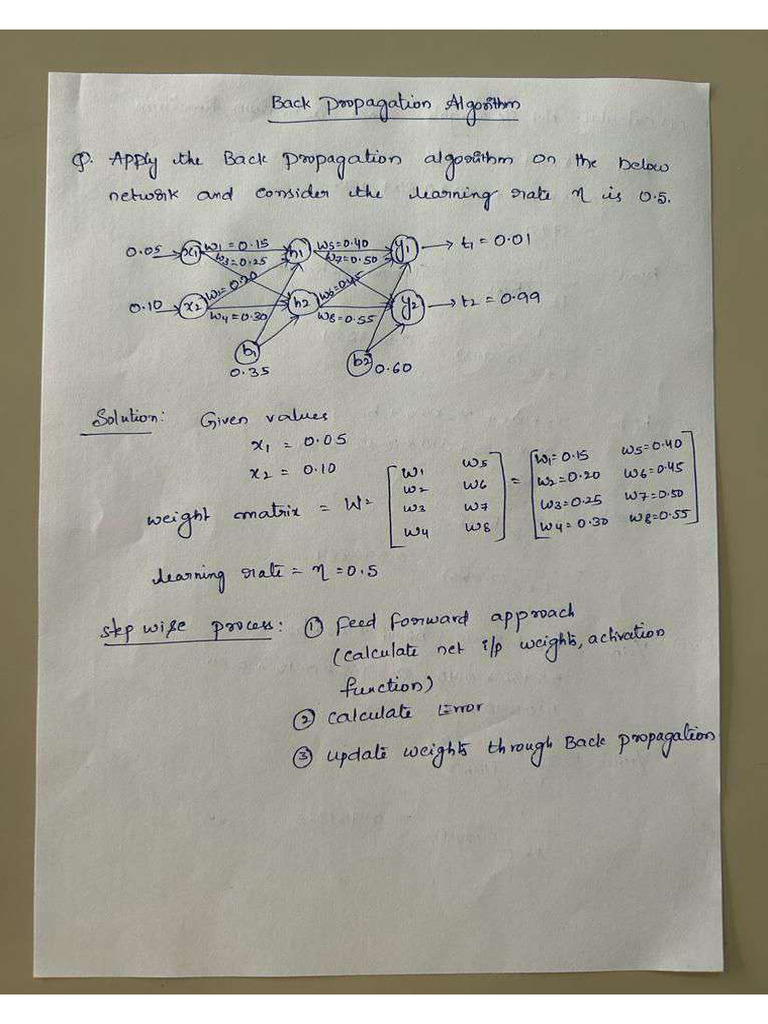 Back Propagation Algorithm
Q. Apply the Back Propagation algorithm on the below
network and consider the learning rate η is 0.5.
0.05 x1 w1=0.15 h1 w5=0.40 y1 t1=0.01
w3=0.25 w7=0.50
w2=0.20 w6=0.45
0.10 x2 w4=0.30 h2 w8=0.55 y2 t2=0.99
b1 b2
0.35 0.60
Solution: Given values
x1 = 0.05
x2 = 0.10
weight matrix = W= [w1 w5 = [w1=0.15 w5=0.40
w2 w6 w2=0.20 w6=0.45
w3 w7 w3=0.25 w7=0.50
w4 w8] w4=0.30 w8=0.55]
learning rate = η = 0.5
step wise process: ① feed forward approach
(calculate net i/p weights, activation
function)
② calculate Error
③ update weights through Back propagation